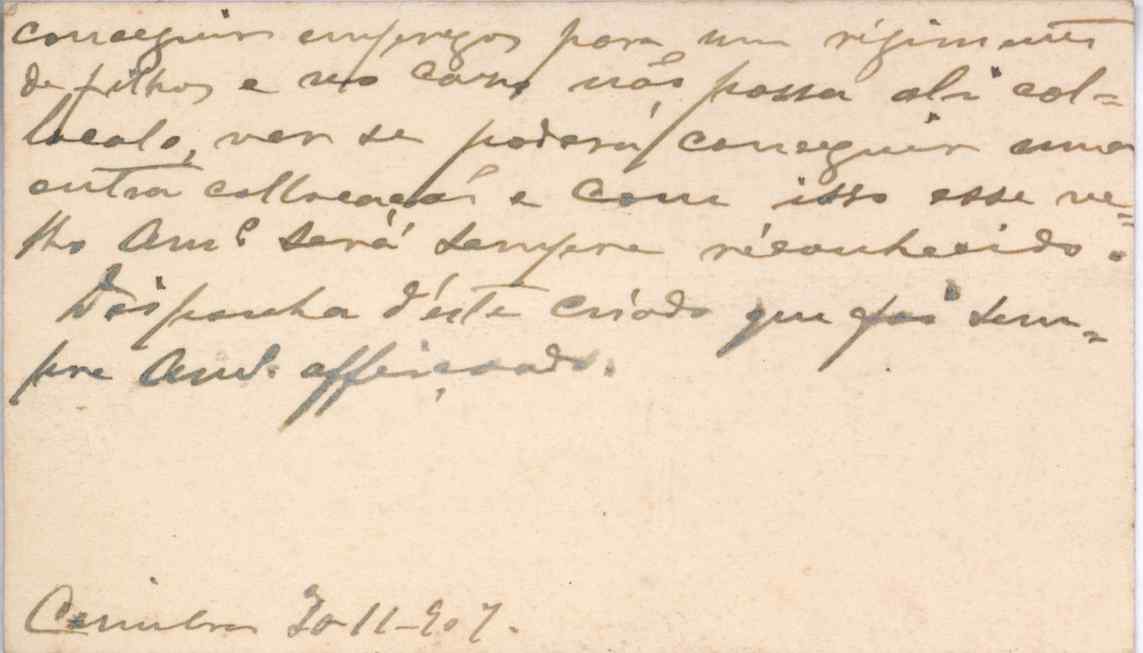 conseguir empregos para um régimento
de filhos e no caso não possa ali col=
local-o, ver se poderá conseguir uma
outra collocação e com isso esse ve=
lho Amº será sempre réconhecido.
Disponha d'éste criádo que foi sem=
pre Amº. affeiçoado.
Coimbra 30-11-907.